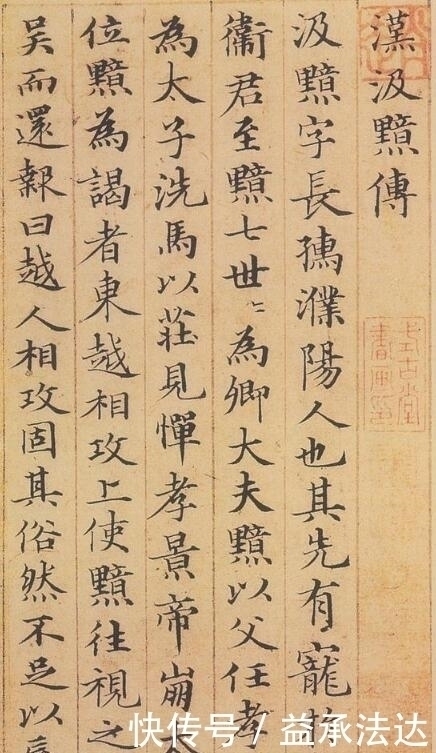 漢汲黯傳
汲黯字長孺濮陽人也其先有寵於
衛君至黯七世〻為卿大夫黯以父任孝
為太子洗馬以莊見憚孝景帝崩
位黯為謁者東越相攻上使黯往視之
吳而還報曰越人相攻固其俗然不足以辱
式古堂
書畫印
快传号/益承法达